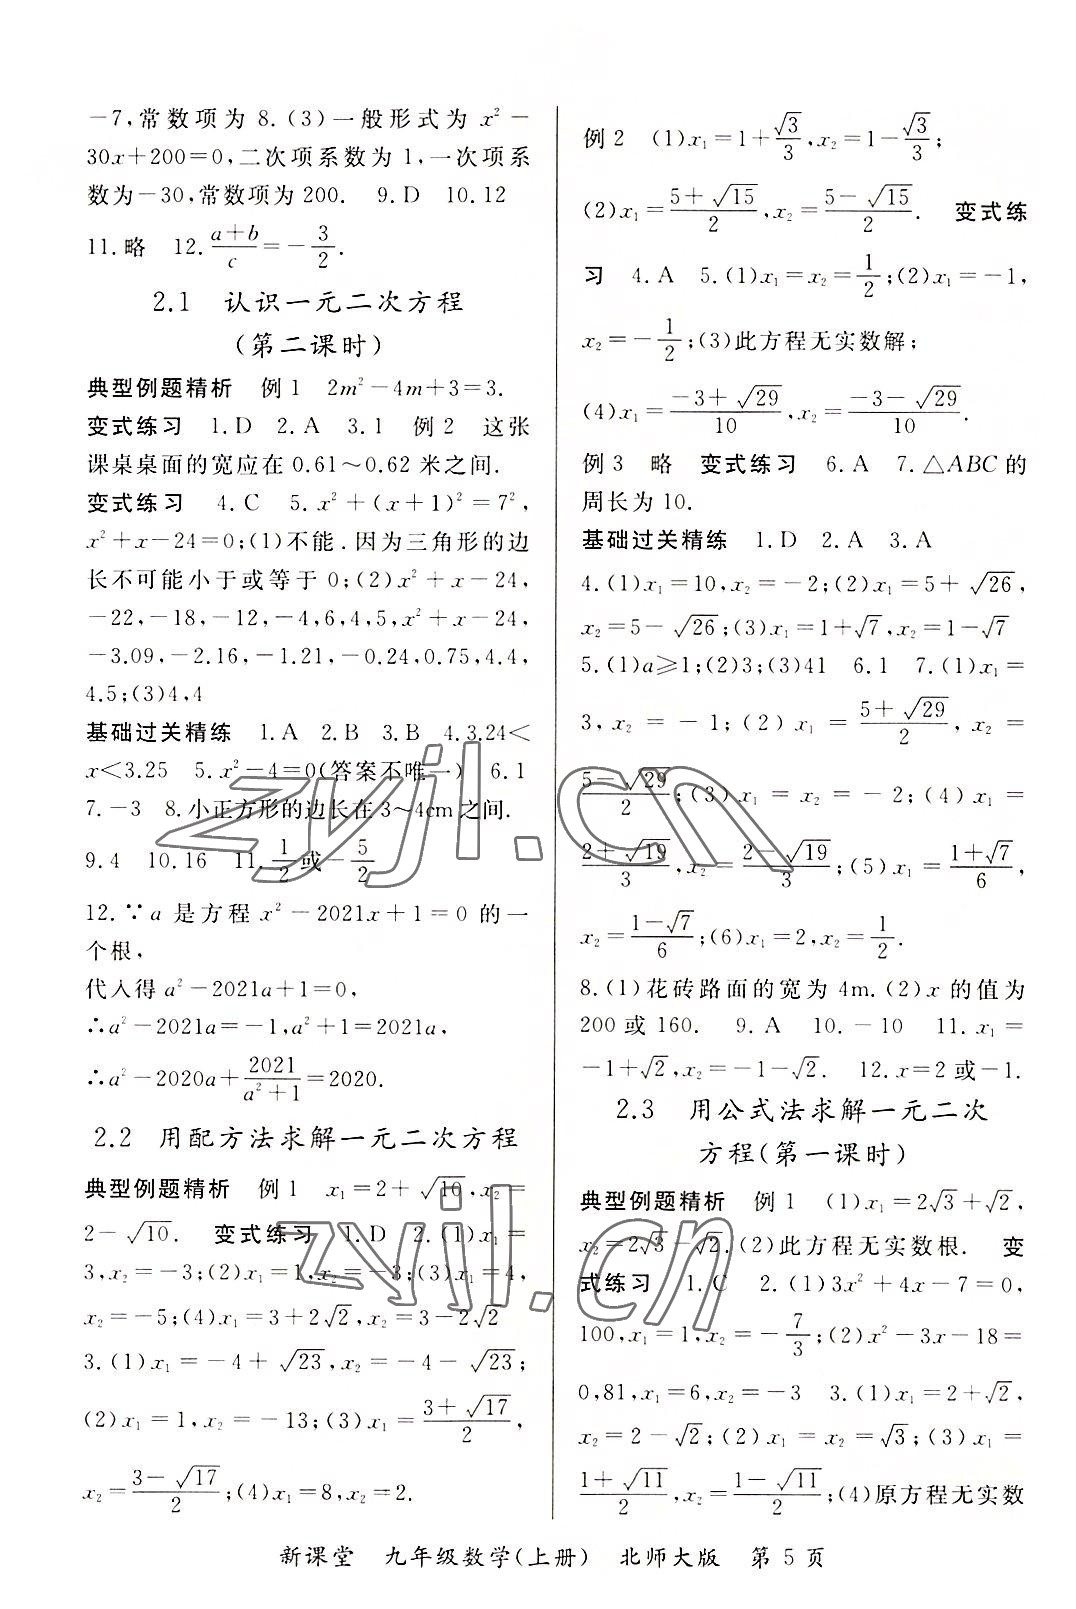 -7,常数项为 8.(3)一般形式为 x²-
30x+200=0,二次项系数为 1,一次项系
数为-30,常数项为 200.  9.D  10.12
11.略  12.(a+b)/c=-3/2.
2.1  认识一元二次方程
(第二课时)
典型例题精析  例 1  2m²-4m+3=3.
变式练习  1.D  2.A  3.1  例 2  这张
课桌桌面的宽应在 0.61～0.62 米之间.
变式练习  4.C  5.x²+(x+1)²=7²,
x²+x-24=0;(1)不能.因为三角形的边
长不可能小于或等于 0;(2)x²+x-24,
-22,-18,-12,-4,6,4,5,x²+x-24,
-3.09,-2.16,-1.21,-0.24,0.75,4.4,
4.5;(3)4,4
基础过关精练  1.A  2.B  3.B  4.3.24<
x<3.25  5.x²-4=0(答案不唯一)  6.1
7.-3  8.小正方形的边长在 3~4cm 之间.
9.4  10.16  11.1/2或-5/2
12.∵a 是方程 x²-2021x+1=0 的一
个根,
代入得 a²-2021a+1=0,
∴a²-2021a=-1,a²+1=2021a,
∴a²-2020a+2021/(a²+1)=2020.
2.2  用配方法求解一元二次方程
典型例题精析  例 1  x₁=2+√10,x₂=
2-√10.  变式练习  1.D  2.(1)x₁=
3,x₂=-3;(2)x₁=1,x₂=-3;(3)x₁=4,
x₂=-5;(4)x₁=3+2√2,x₂=3-2√2
3.(1)x₁=-4+√23,x₂=-4-√23;
(2)x₁=1,x₂=-13;(3)x₁=(3+√17)/2,
x₂=(3-√17)/2;(4)x₁=8,x₂=2.
例 2  (1)x₁=1+√3/3,x₂=1-√3/3;
(2)x₁=(5+√15)/2,x₂=(5-√15)/2.  变式练
习  4.A  5.(1)x₁=x₂=1/2;(2)x₁=-1,
x₂=-1/2;(3)此方程无实数解;
(4)x₁=(-3+√29)/10,x₂=(-3-√29)/10.
例 3  略  变式练习  6.A  7.△ABC 的
周长为 10.
基础过关精练  1.D  2.A  3.A
4.(1)x₁=10,x₂=-2;(2)x₁=5+√26,
x₂=5-√26;(3)x₁=1+√7,x₂=1-√7
5.(1)a≥1;(2)3;(3)41  6.1  7.(1)x₁=
3,x₂=-1;(2)x₁=(5+√29)/2,x₂=
(5-√29)/2;(3)x₁=x₂=-2;(4)x₁=
(2+√19)/3,x₂=(2-√19)/3;(5)x₁=(1+√7)/6,
x₂=(1-√7)/6;(6)x₁=2,x₂=1/2.
8.(1)花砖路面的宽为 4m.(2)x 的值为
200 或 160.  9.A  10.-10  11.x₁=
-1+√2,x₂=-1-√2.  12.x=2 或-1.
2.3  用公式法求解一元二次
方程(第一课时)
典型例题精析  例 1  (1)x₁=2√3+√2,
x₂=2√3-√2.(2)此方程无实数根.  变
式练习  1.C  2.(1)3x²+4x-7=0,
100,x₁=1,x₂=-7/3;(2)x²-3x-18=
0,81,x₁=6,x₂=-3  3.(1)x₁=2+√2,
x₂=2-√2;(2)x₁=x₂=√3;(3)x₁=
(1+√11)/2,x₂=(1-√11)/2;(4)原方程无实数
新课堂  九年级数学(上册)  北师大版  第 5 页
zyjl.cn
zyjl.cn